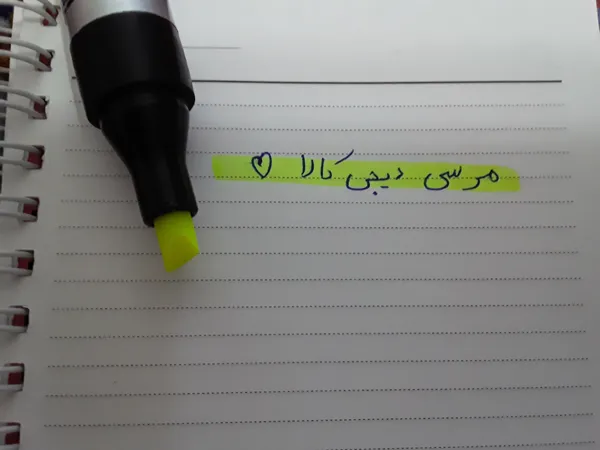 مرسی دیجی کالا ♡